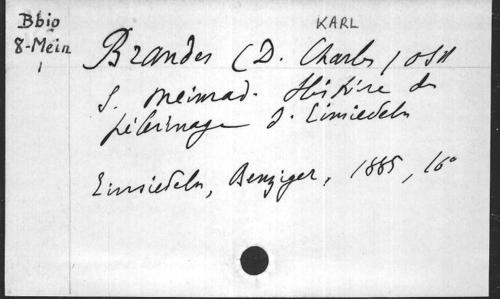 Bbio
8-Mein
1
KARL
Brandes (D. Charles) OSB
S. Meinrad. Histoire du
pèlerinage d. Einsiedeln
Einsiedeln, Benziger, 1885, 16°